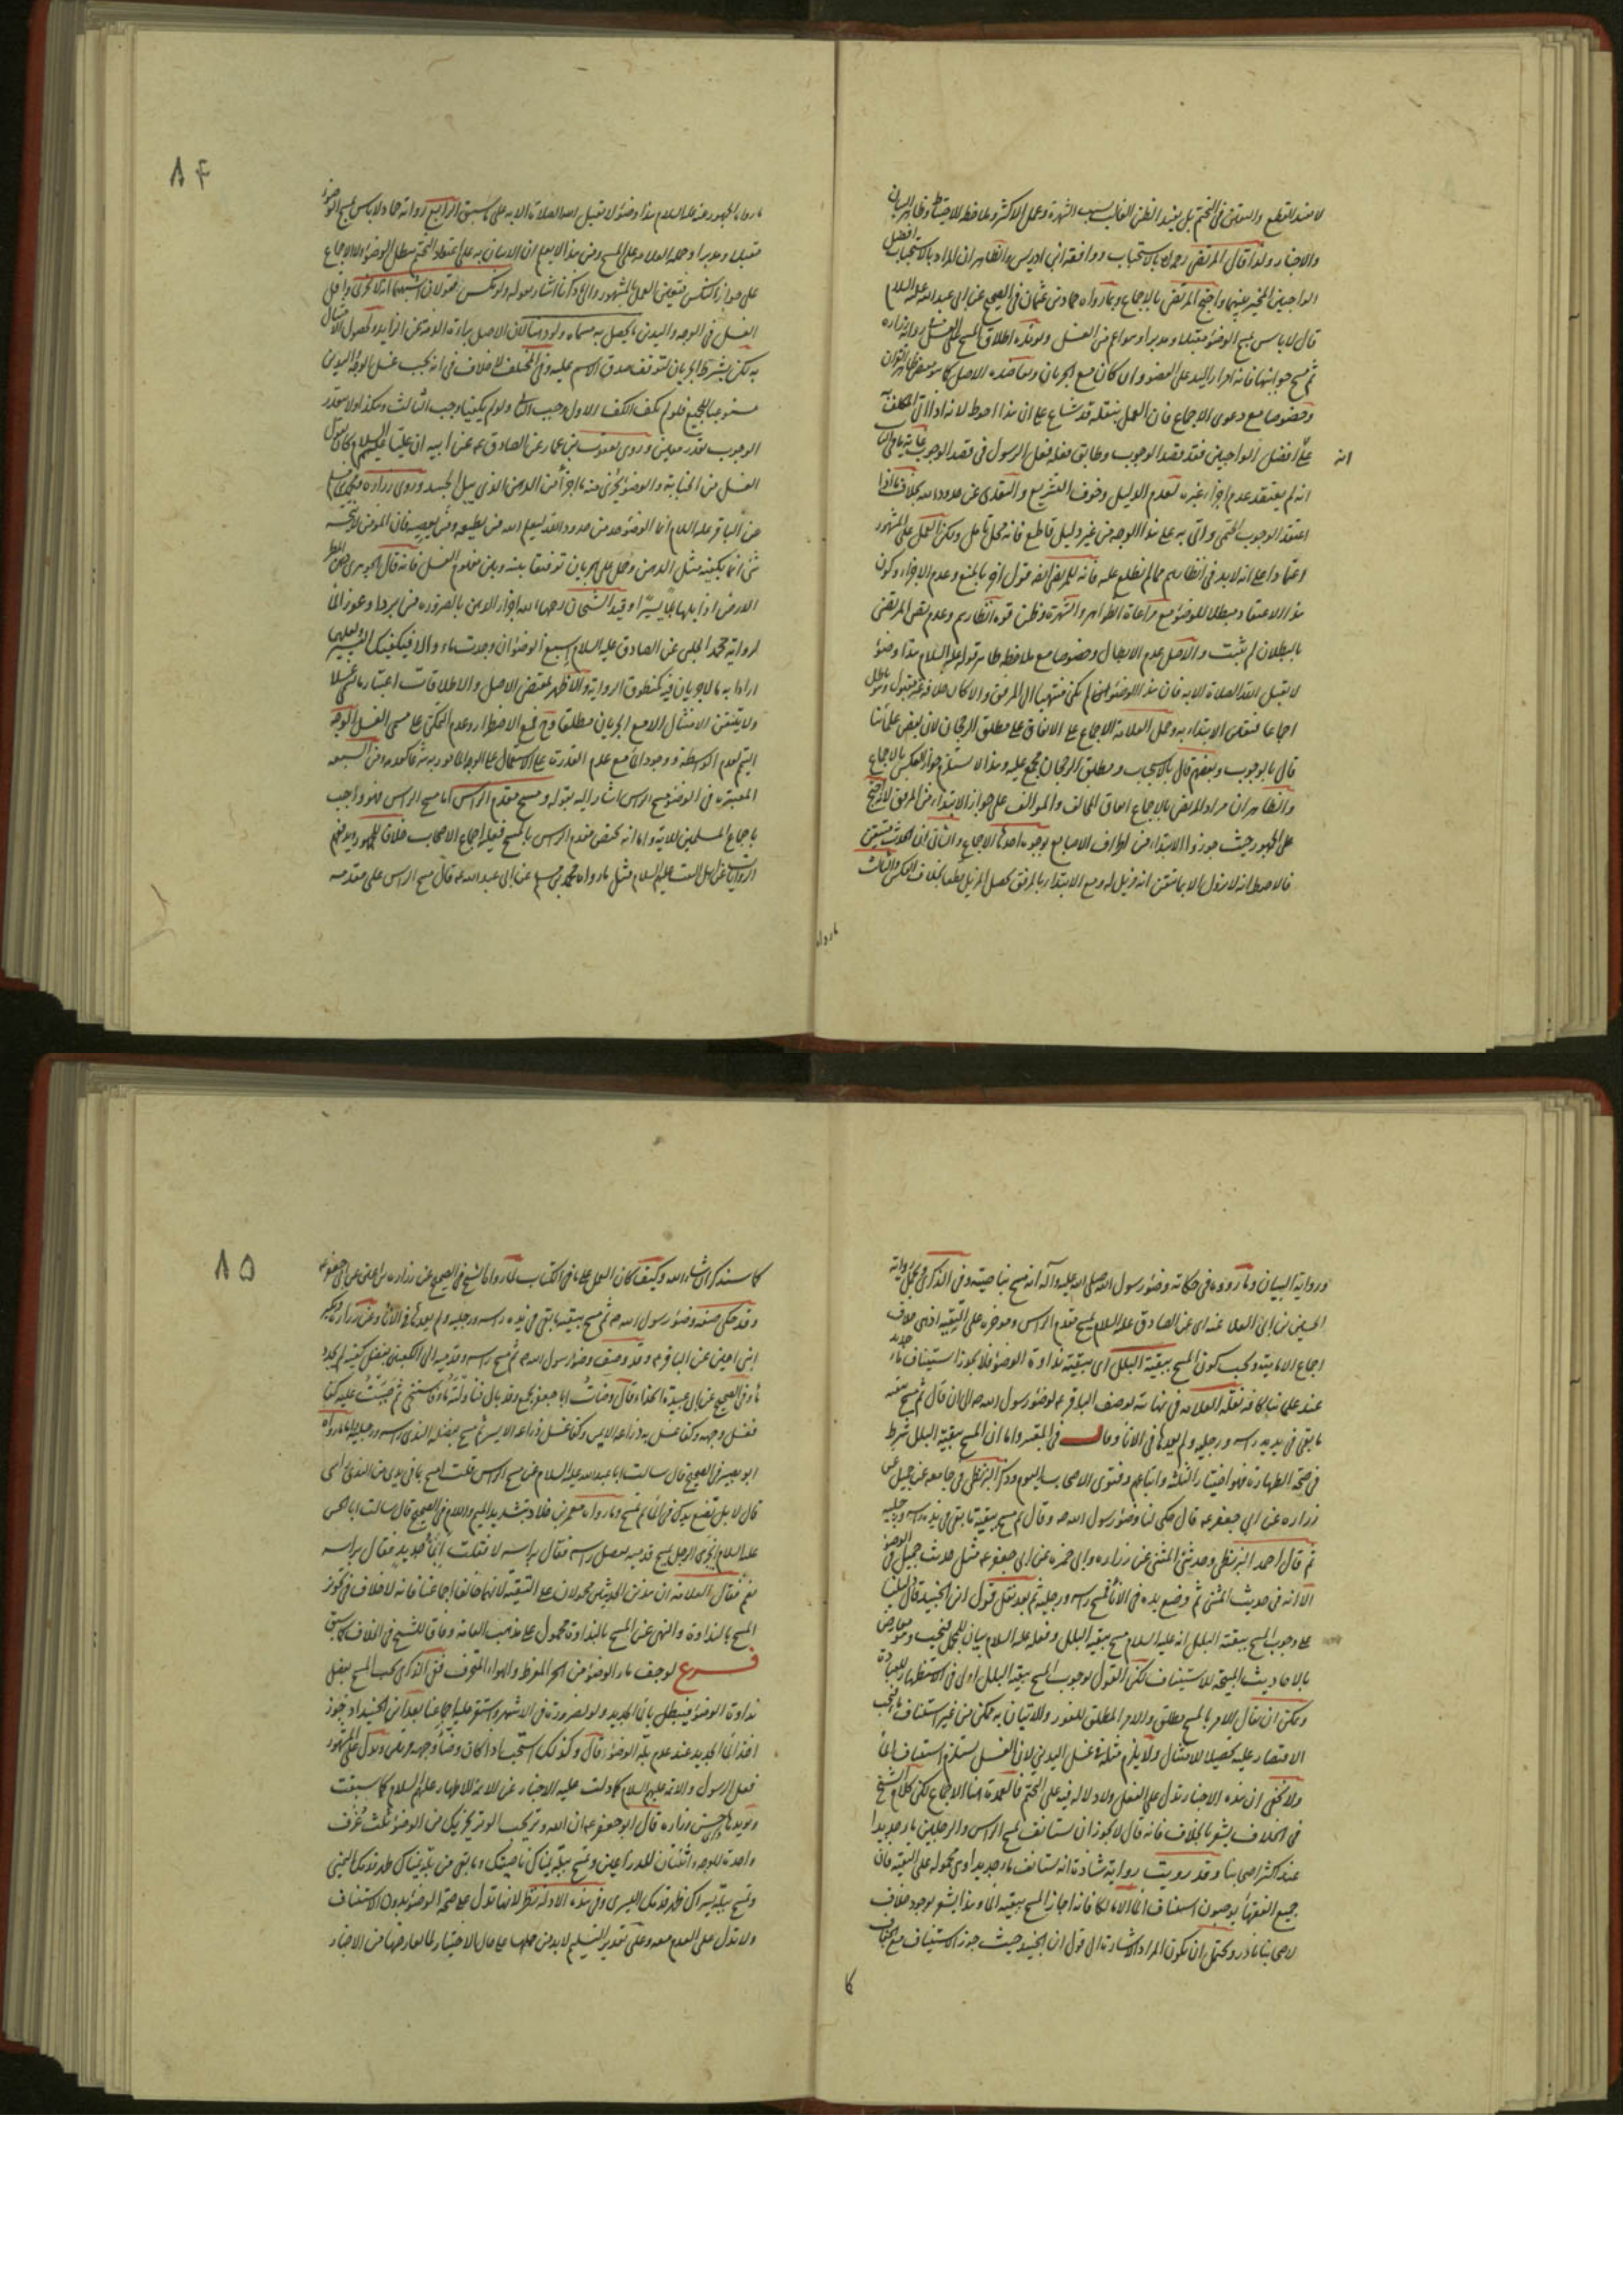 لا يفيد القطع واليقين في التحتم بل يفيد الظن الغالب بسبب الشهرة وعمل الاكثر وملاحظة الاحتياط وظاهر البيان
والاخبار ولذا قال المرتضى رحمه الله بالاستحباب ووافقه ابن ادريس والظاهر ان المراد بالاستحباب افضل
الواجبين المخير بينهما واحتج المرتضى بالاجماع وبما رواه حماد بن عثمان في الصحيح عن ابي عبد الله عليه السلام
قال لا باس بمسح الوضوء مقبلا ومدبرا وهو اعم من الغسل ويؤيده اطلاق المسح على الغسل
ثم مسح جوانبها فانه امرار اليد على العضو وان كان مع الجريان
وخصوصا مع دعوى الاجماع فان العمل بنقله قد شاع على ان هذا احوط لانه اذا اتى المكلف به
على افضل الواجبين فقد قصد الوجوب وطابق فعله فعل الرسول في قصد الوجوب
انه
انه لم يعتقد عدم اجزاء غيره لعدم الدليل وخوف التشريع والتعدي عن حدود الله بخلاف ما اذا
اعتقد الوجوب الحتمي واتى به على هذا الوجه من غير دليل قاطع فانه محل تامل ويمكن العمل على المشهور
هذا الاعتقاد مبطلا للوضوء مع مراعاة الظواهر والشهرة وظن قوة انظارهم وعدم نص المرتضى
بالبطلان لم يثبت والاصل عدم الابطال وخصوصا مع ملاحظة ظاهر قوله عليه السلام هذا وضوء
لا يقبل الله الصلاة الا به فان هذا الوضوء ان لم يكن منتهيا الى المرفق والا كان خلافه غير مقبول وباطل
اجماعا فتعين الابتداء به وحمل العلامة الاجماع على الاتفاق على مطلق الرجحان لان بعض علمائنا
قال بالوجوب وبعضهم قال بالاستحباب ومطلق الرجحان مجمع عليه وهذا لا يستلزم جواز العكس بالاجماع
والظاهر ان مراد المرتضى بالاجماع اتفاق المخالف والموالف على جواز الابتداء من المرفق
على الجمهور حيث جوزوا الابتداء من اطراف الاصابع بوجوه احدها الاجماع والثاني ان الحدث متيقن
فالاحوط انه لا يزول الا بما تيقن انه مزيل له ومع الابتداء بالمرفق يحصل المزيل قطعا بخلاف العكس والثالث
ما رواه
٨٤
ما رواه الجمهور عنه عليه السلام هذا وضوء لا يقبل الله الصلاة الا به على ما سبق الرابع رواية حماد لا باس بمسح الوضوء
مقبلا ومدبرا وحمله العلامة على المسح
على جواز النكس فتعين العمل بالمشهور
الغسل في الوجه واليدين ما يحصل به مسماه ولو دهنا لان الاصل براءة الذمة عن الزايد وحصول الامتثال
به لكن يشترط الجريان لتوقف صدق الاسم عليه وفي المختلف لا خلاف في انه يجب غسل الوجه واليدين
مستوعبا للجميع فلو لم يكف الكف الاول وجب الثاني ولو لم يكفيا وجب الثالث وهكذا ولا يتقدر
الوجوب بقدر معين وروى اسحق بن عمار عن الصادق ع عن ابيه ان عليا عليه السلم كان يقول
الغسل من الجنابة والوضوء يجزي منه ما اجزأ من الدهن الذي يبل الجسد وروى زرارة ومحمد بن مسلم
عن الباقر عليه السلام انما الوضوء حد من حدود الله ليعلم الله من يطيعه ومن يعصيه فان المؤمن لا ينجسه
شئ انما يكفيه مثل الدهن وحمل على الجريان توفيقا بينه وبين مفهوم الغسل فانه قال الجوهري
الارض اذا بلها بللا يسيرا وقيد الشيخان رحمهما الله اجزاء الدهن بالضرورة من برد او عوز الماء
لرواية محمد الحلبي عن الصادق عليه السلام اسبغ الوضوء ان وجدت ماء والا فيكفيك اليسير
ارادا به ما لا جريان فيه كمنطوق الرواية والاظهر بمقتضى الاصل والاطلاقات اعتبار ما يسمى غسلا
ولا يتيقن الامتثال الا مع الجريان مطلقا ومع فرض الاضطرار وعدم التمكن على مسمى الغسل
التيمم لعدم الواسطة ووجود الماء مع عدم القدرة على الاستعمال على الوجه المامور به شرعا كعدمه ومن السبعة
المعتبرة في الوضوء مسح الراس اشار اليه بقوله ومسح مقدم الراس اما مسح الراس فهو واجب
باجماع المسلمين للاية واما انه يختص مقدم الراس بالمسح فعليه اجماع الاصحاب خلافا للجمهور
الروايات عن اهل البيت عليهم السلام مثل ما رواه محمد بن مسلم عن ابي عبد الله ع قال مسح الراس على مقدمه
ورواية البيان وما رووه في حكاية وضوء رسول الله صلى الله عليه واله انه مسح بناصيته وفي الذكرى يحمل رواية
الحسين بن ابي العلاء عنه اي عن الصادق عليه السلام يمسح مقدم الراس وموخره على التقية اذ هي خلاف
اجماع الامامية ويجب كون المسح ببقية البلل اى ببقية نداوة الوضوء فلا يجوز استيناف ماء جديد
عند علمائنا كافة نقله العلامة في نهايته لوصف الباقر ع لوضوء رسول الله ص الى ان قال ثم مسح ببقية
ما بقي في يديه راسه ورجليه ولم يعدهما في الاناء وقال في المعتبر واما ان المسح ببقية البلل شرط
في صحة الطهارة فهو اختيار الثلثة واتباعهم وفتوى الاصحاب اليوم وذكر البزنطي في جامعه عن جميل عن
زرارة عن ابي جعفر ع قال حكى لنا وضوء رسول الله ص وقال ثم مسح ببقية ما بقي في يديه راسه ورجليه
ثم قال احمد البزنطي وحدثني المثنى عن زرارة وابي حمزة عن ابي جعفر ع مثل حديث جميل في الوضوء
الا انه في حديث المثنى ثم وضع يده في الاناء فمسح راسه ورجليه ثم بعد نقل قول ابن الجنيد قال لنا
على وجوب المسح ببقية البلل انه عليه السلام مسح ببقية البلل وفعله عليه السلام بيان للمجمل فيجب وهو معارض
بالاحاديث المبيحة للاستيناف لكن القول بوجوب المسح ببقية البلل اولى في الاستظهار للعبادة
ويمكن ان يقال الامر بالمسح مطلق والامر المطلق للفور والاتيان به ممكن من غير استيناف ماء فيجب
الاقتصار عليه تحصيلا للامتثال ولا يلزم مثله في غسل اليدين لان الغسل يستلزم استيناف الماء
ولا يخفى ان هذه الاخبار تدل على الفعل ولا دلالة فيه على التحتم فالعمدة هنا الاجماع لكن كلام الشيخ
في الخلاف يشعر بالخلاف فانه قال لا يجوز ان يستانف لمسح الراس والرجلين ماء جديدا
عند اكثر اصحابنا وقد رويت رواية شاذة انه يستانف ماء جديدا وهي محمولة على التقية فان
جميع الفقهاء يوجبون استيناف الماء الا مالكا فانه اجاز المسح ببقية الماء وهذا يشعر بوجود خلاف
لاصحابنا نادر ويحتمل ان يكون المراد الاشارة الى قول ابن الجنيد حيث جوز الاستيناف مع الجفاف
كما
٨٥
كما سنذكر ان شاء الله وكيف كان العمل على ما في الكتاب لما رواه الشيخ في الصحيح عن زرارة بن اعين عن ابي جعفر ع
وقد حكى صفة وضوء رسول الله ص ثم مسح ببقية ما بقي في يديه راسه ورجليه ولم يعدهما في الاناء وعن زرارة وبكير
ابني اعين عن الباقر ع وقد وصف وضوء رسول الله ص ثم مسح راسه وقدميه الى الكعبين بفضل كفيه لم يجدد
ماء وفي الصحيح عن ابي عبيدة الحذاء قال وضات ابا جعفر بجمع وقد بال فناولته ماء فاستنجى ثم صببت عليه كفا
فغسل وجهه وكفا غسل به ذراعه الايمن وكفا غسل ذراعه الايسر ثم مسح بفضلة الندى راسه ورجليه اما ما رواه
ابو بصير في الصحيح قال سالت ابا عبد الله عليه السلام عن مسح الراس قلت امسح بما في يدي من الندى راسي
قال لا بل تضع يدك في الماء ثم تمسح وما رواه معمر بن خلاد بتشديد الميم واللام في الصحيح قال سالت ابا الحسن
عليه السلام ايجزي الرجل يمسح قدميه بفضل راسه فقال براسه لا فقلت ابماء جديد فقال براسه
نعم فقال العلامة ان هذين الحديثين محمولان على التقية لانهما خالفا اجماعنا فانه لا خلاف في تجويز
المسح بالنداوة والنهي عن المسح بالنداوة محمول على مذهب العامة وفاقا للشيخ في الخلاف كما سبق
فرع لو جف ماء الوضوء من الحر المفرط والهواء المجفف ففي الذكرى يجب المسح بفعل
نداوة الوضوء فيبطل بالماء الجديد ولو لضرورة في الاشهر واستقر عليه اجماعنا بعد ابن الجنيد اذ جوز
اخذ الماء الجديد عند عدم بلة الوضوء قال وكذلك
فعل الرسول والائمة عليهم السلام كما دلت عليه الاخبار عن الائمة الاطهار عليهم السلام كما سبقت
ويؤيدها حسن زرارة قال ابو جعفر ع ان الله وتر يحب الوتر يجزيك من الوضوء ثلث غرف
واحدة للوجه واثنتان للذراعين وتمسح ببلة يمناك ناصيتك وما بقي من بلة يمناك ظهر قدمك اليمنى
وتمسح ببلة يسراك ظهر قدمك اليسرى وفي هذه الادلة نظر لانها تدل على صحة الوضوء بدون الاستيناف
ولا تدل على العدم معه وعلى تقدير التسليم لا بد من حملها على حال الاختيار لما يعارضها من الاخبار